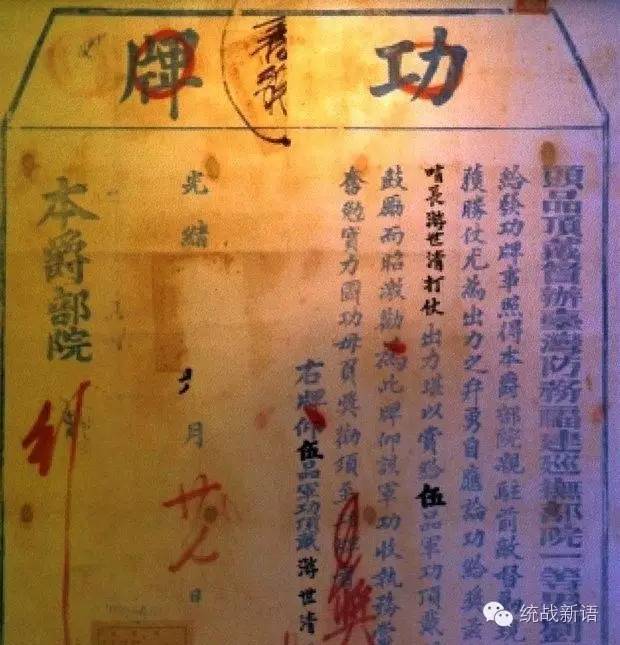 功牌
頭品頂戴督辦臺灣防務福建巡撫部院一等男劉
給發功牌事照得本爵部院親駐前敵督
獲勝仗尤為出力之弁勇自應論功給獎茲
哨長游世清打仗出力堪以賞給伍品軍功頂戴
鼓勵而昭激勸為此牌仰該軍功收執務當
奮勉實力圖功毋負獎勸須至
右牌仰伍品軍功頂戴游世清
獎
光緒 月 日
本爵部院
统战新语